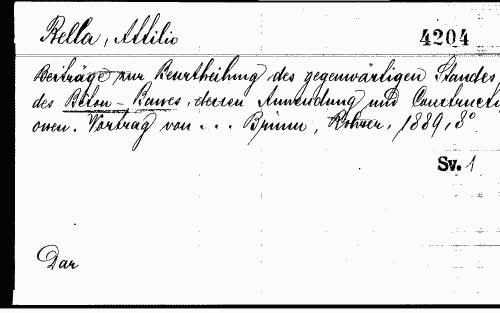 Rella, Attilio 4204
Beiträge zur Beurtheilung des gegenwärtigen Standes
des Béton-Baues, dessen Anwendung und Constructi-
onen. Vortrag von ... Brünn, Rohrer, 1889, 8°
Sv. 1
Dar